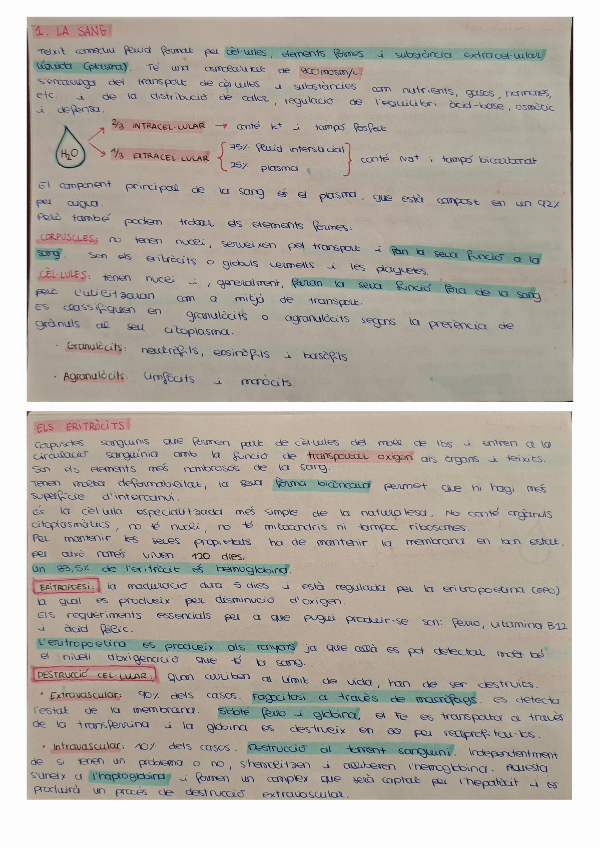 1. LA SANG
Teixit conectiu fluid format per cèl·lules, elements formes i substància extracel·lular
líquida (plasma). Té una osmolaritat de 300mosm/L.
s'encarrega del transport de cèl·lules i substàncies com nutrients, gasos, hormones,
etc. i de la distribució de calor, regulació de l'equilibri àcid-base, osmòtic
i defensa.
H2O
2/3 INTRACEL·LULAR → conté K+ i tampó fosfat
1/3 EXTRACEL·LULAR
75% fluid intersticial
25% plasma
conté Na+ i tampó bicarbonat
El component principal de la sang és el plasma, que està compost en un 92%
per aigua.
Però també podem trobar els elements formes.
CORPUSCLES: no tenen nucli, serveixen pel transport i fan la seva funció a la
sang. Son els eritròcits o glòbuls vermells i les plaquetes.
CÈL·LULES: tenen nucli i, generalment, faran la seva funció fora de la sang
però l'utilitzaran com a mitjà de transport.
Es classifiquen en granulòcits o agranulòcits segons la presència de
grànuls al seu citoplasma.
· Granulòcits: neutròfils, eosinòfils i basòfils
· Agranulòcits: limfòcits i monòcits
ELS ERITRÒCITS
Corpuscles sanguinis que formen part de cèl·lules del moll de l'os i entren a la
circulació sanguínia amb la funció de transportar oxigen als òrgans i teixits.
Son els elements més nombrosos de la sang.
Tenen molta deformabilitat, la seva forma bicòncava permet que hi hagi més
superfície d'intercanvi.
És la cèl·lula especialitzada més simple de la naturalesa. No conté orgànuls
citoplasmàtics, no té nucli, no té mitocondris ni tampoc ribosomes.
Per mantenir les seves propietats ha de mantenir la membrana en bon estat,
per això només viuen 120 dies.
Un 33,5% de l'eritròcit és hemoglobina.
ERITROPOESI: la maduració dura 5 dies i està regulada per la eritropoetina (EPO)
la qual es produeix per disminució d'oxigen.
Els requeriments essencials per a que pugui produir-se són: ferro, vitamina B12
i àcid fòlic.
L'eritropoetina es produeix als ronyons ja que allà es pot detectar molt bé
el nivell d'oxigenació que té la sang.
DESTRUCCIÓ CEL·LULAR: quan arriben al límit de vida, han de ser destruïts.
· Extravascular: 90% dels casos. Fagocitosi a través de macròfags. es detecta
l'estat de la membrana. S'obté ferro i globina, el Fe es transporta a través
de la transferrina i la globina es destrueix en aa per reaprofitar-los.
· Intravascular: 10% dels casos. Destrucció al torrent sanguini. Independentment
de si tenen un problema o no, s'hemolitzen i alliberen l'hemoglobina. Aquesta
s'uneix a l'haptoglobina i formen un complex que serà captat per l'hepatòcit i es
produirà un procés de destrucció extravascular.